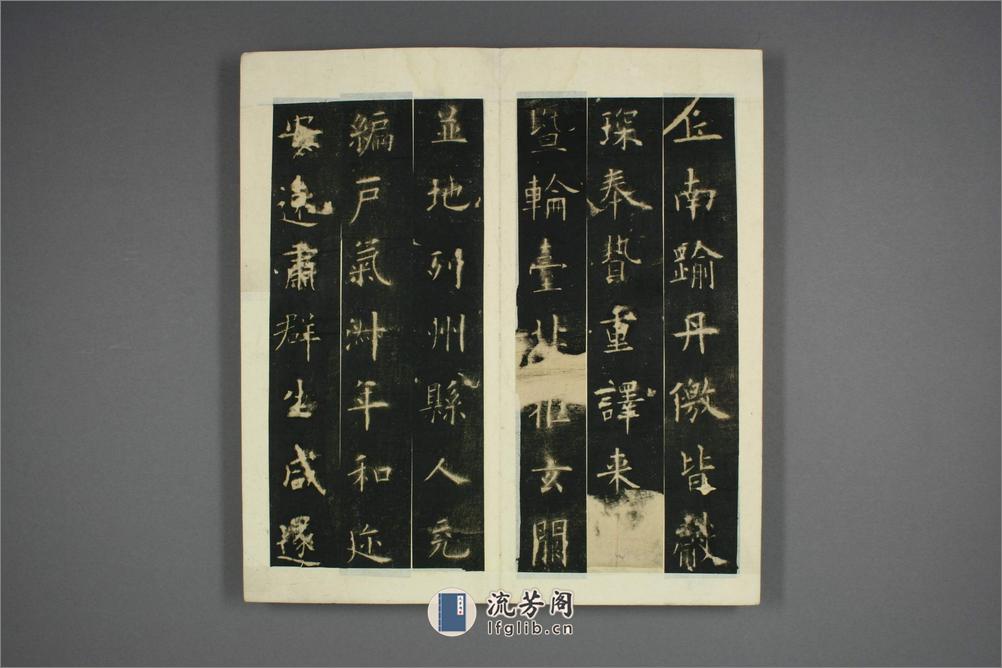 丘南踰丹徼皆獻
琛奉贄重譯来
暨輪臺北拒玄闕
並地列州縣人充
編戶氣淑年和迩
安逺肅群生咸遂
流芳阁
lfglib.cn